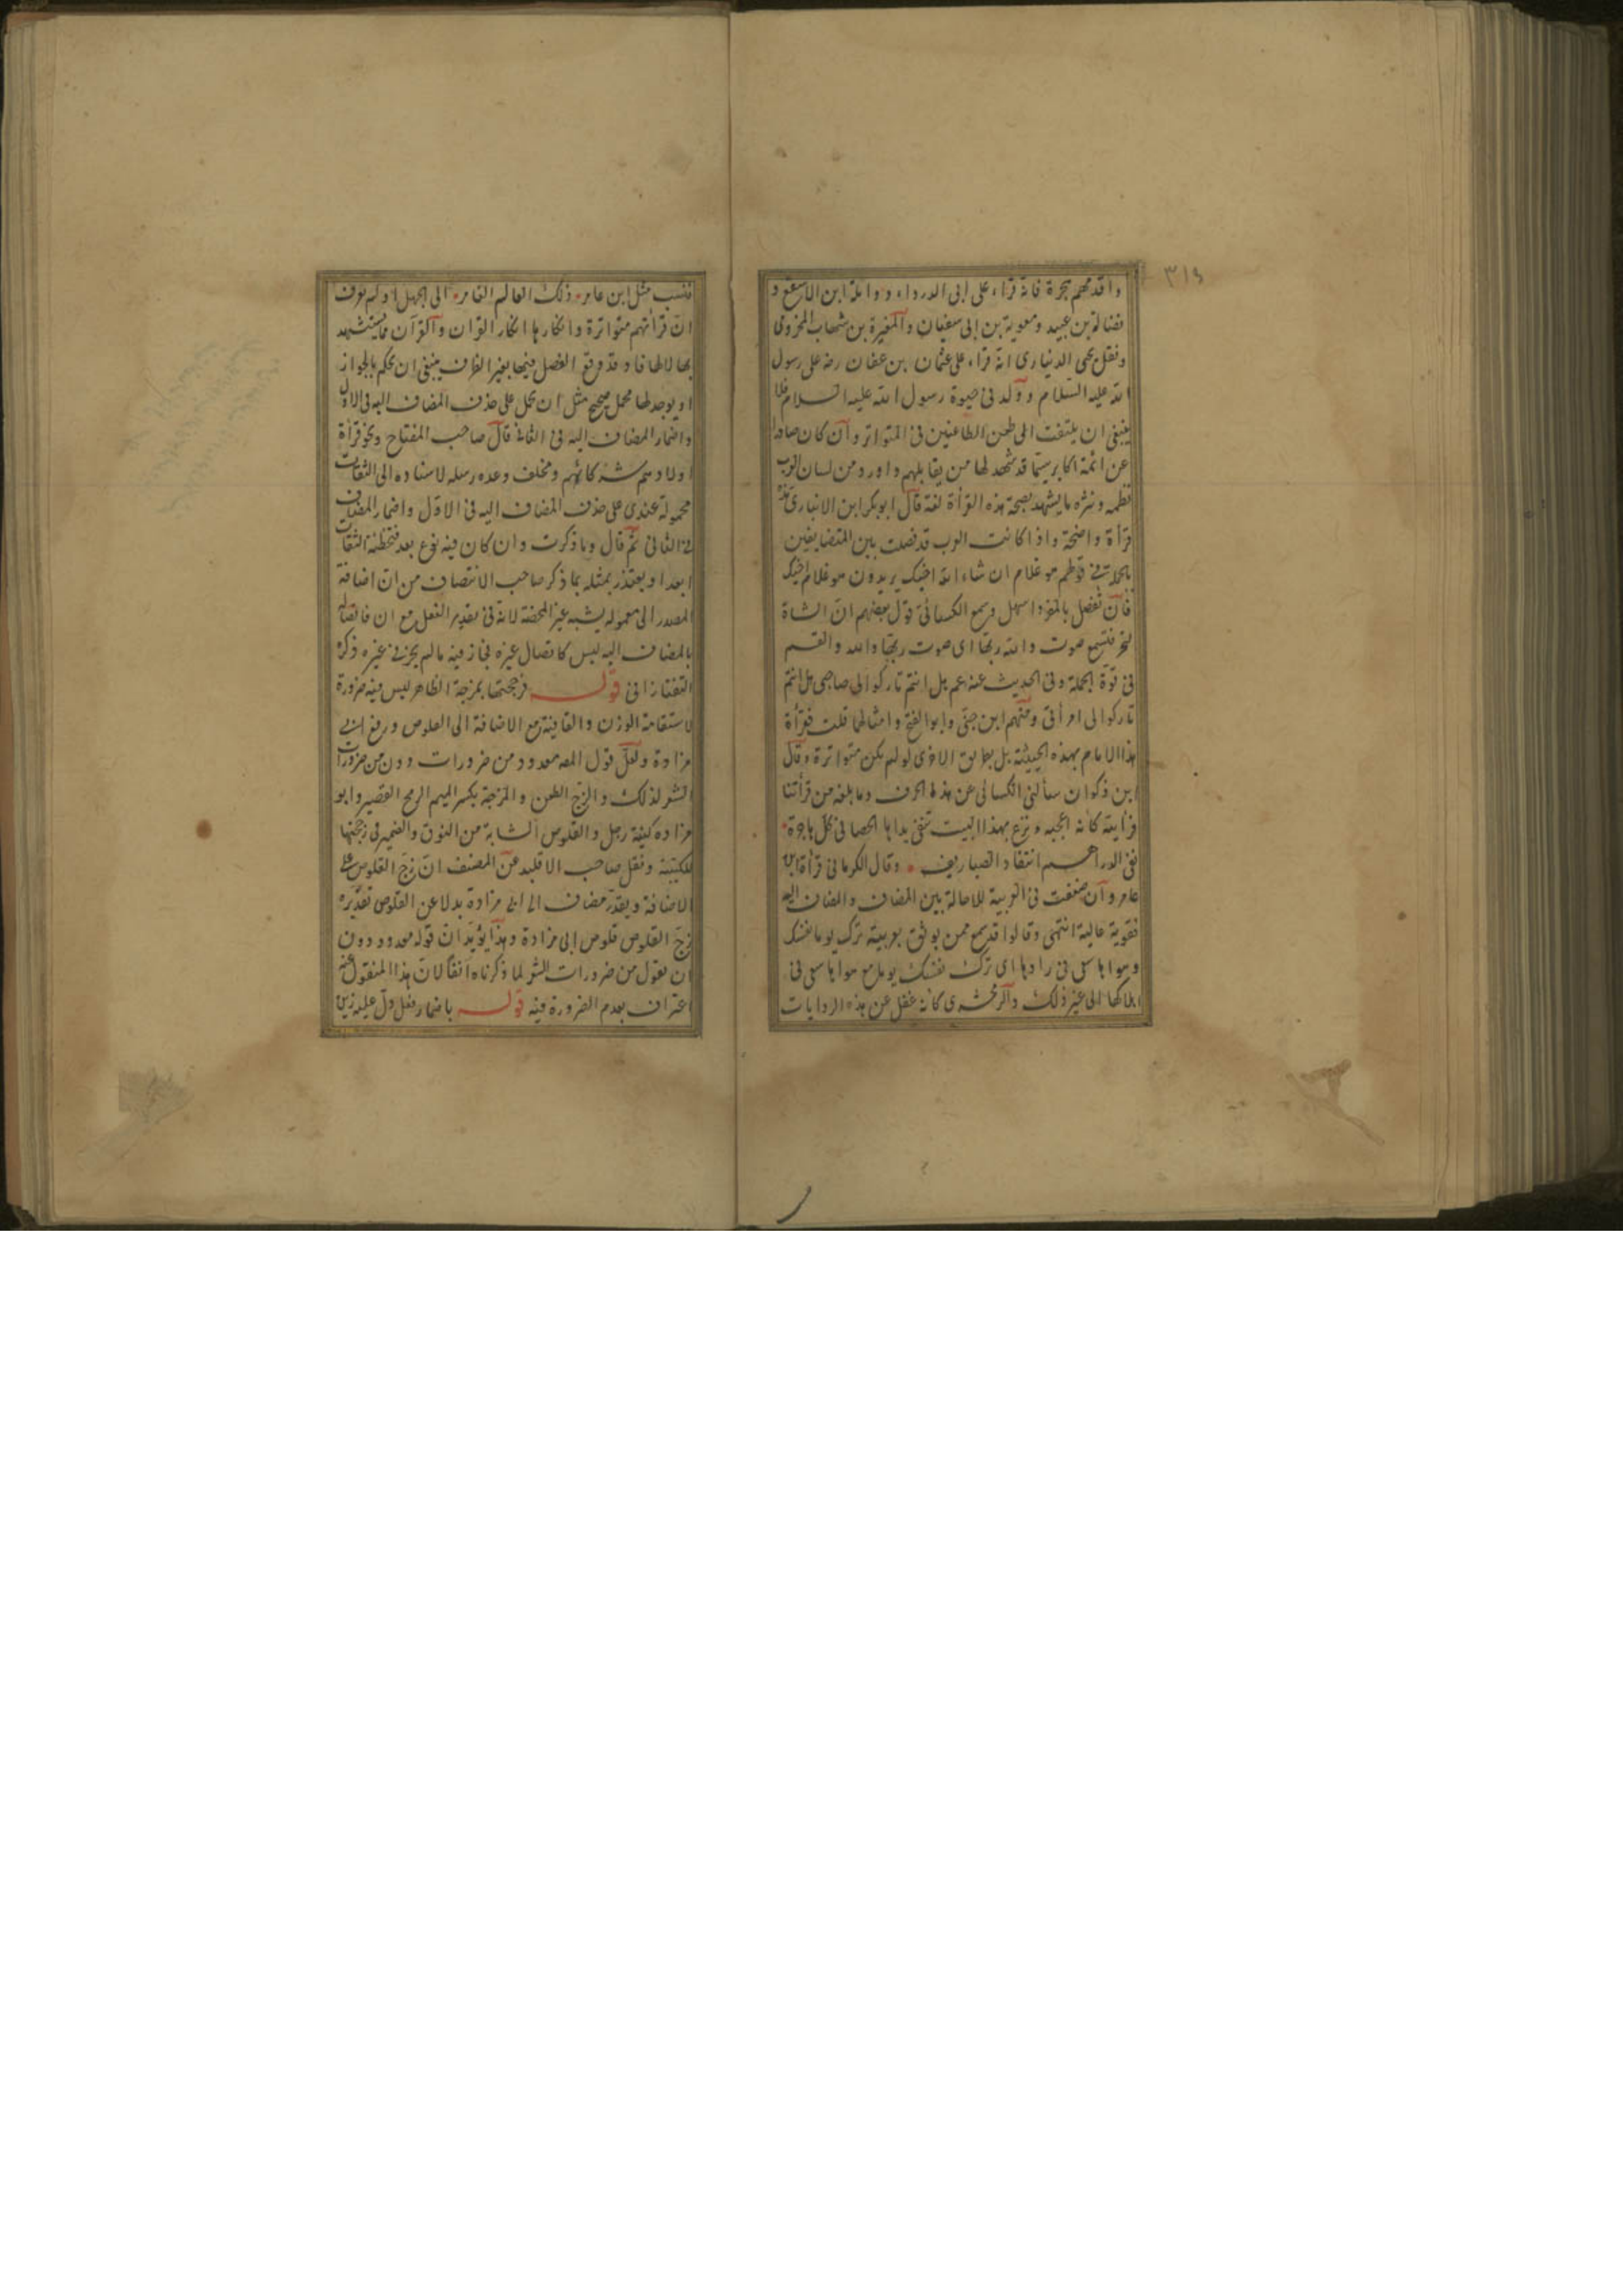 ٣١٩
واقدمهم هجرة فانه قراء على ابى الدرداء وواثلة ابن الاسقع و
فضالة بن عبيد ومعوية بن ابى سفيان والمغيرة بن شهاب المخزومى
ونقل يحيى الذمارى انه قراء على عثمان بن عفان رضه على رسول
الله عليه السلام وولد فى حيوة رسول الله عليه السلام فلا
ينبغى ان يلتفت الى طعن الطاعنين فى المتواتر وان كان صادرا
عن ائمة اكابر سيما قد شهد لها من يقابلهم واورد من لسان العرب
نظمه ونثره ما يشهد بصحة هذه القرأة لغة قال ابو بكر ابن الانبارى هذه
قرأة واضحة واذا كانت العرب قد فصلت بين المتضايفين
بالجملة فى قولهم هو غلام ان شاء الله اخيك يريدون هو غلام اخيك
فان تفصل بالمفرد اسهل وسمع الكسائى قول بعضهم ان الشاة
لتجر فتسمع صوت والله ربها اى صوت ربها والله والقسم
فى قوة الجملة وفى الحديث عنه عم هل انتم تاركوا لى صاحبى هل انتم
تاركوا لى امرأتى ومنهم ابن جنى وابو الفتح وامثالها قلت فقرأة
هذا الامام بهذه الحيثية بل بطريق الاخرى لو لم يكن متواترة وقال
ابن ذكوان سألنى الكسائى عن هذا الحرف وما بلغه من قرأتنا
فرأيته كأنه اعجبه ونزع بهذا البيت تنفى يداها الحصا فى كل هاجرة
نفى الدراهم انتقاد الصياريف وقال الكرمانى قرأة ابن
عامر وان ضعفت فى العربية للاحالة بين المضاف والمضاف اليه
فقوية عالية انتهى وقالوا قد سمع ممن يوثق بعربيته ترك يوما نفسك
وهواها سعى فى رداها اى ترك نفسك يوما مع هواها سعى فى
هلاكها الى غير ذلك والزمخشرى كانه غفل عن هذه الروايات
فنسب مثل ابن عامر ذلك العالم الغامر الى الجهل اولم يعرف
ان قرأتهم متواترة وانكارها انكار القران والقرآن مما يستشهد
بها لا لها فاذ قد وقع الفصل فيها بغير الظرف ينبغى ان يحكم بالجواز
او يوجد لها محمل صحيح مثل ان يحمل على حذف المضاف اليه فى الاول
واضمار المضاف اليه فى الثانى قال صاحب المفتاح ونحو قرأة
اولادهم شركائهم ومخلف وعده رسله لاسناده الى الثقات
محمولة عندى على حذف المضاف اليه فى الاول واضمار المضاف
فى الثانى ثم قال وما ذكرت وان كان فيه نوع بعد فتخطئة الثقات
ابعد او يعتذر بمثله بما ذكر صاحب الانتصاف من ان اضافة
المصدر الى معموله يشبه غير المحضة لانه فى تقدير الفعل مع ان فاتصاله
بالمضاف اليه ليس كاتصال غيره فجاز فيه مالم يجز فى غيره ذكره
التفتازانى قوله فزججتها بمزجة الظاهر ليس فيه ضرورة
لاستقامة الوزن والقافية مع الاضافة الى القلوص ورفع ابى
مزادة ولعل قول المصه معدود من ضرورات دون من ضرورات
الشعر لذلك والزج الطعن والمزجة بكسر الميم الرمح القصير وابو
مزاده كنية رجل والقلوص الشابة من النوق والضمير فى زججتها
للكتيبة ونقل صاحب الاقليد عن المصنف ان زج القلوص على
الاضافة ويقدر مضاف الى ابى مزادة بدلا عن القلوص تقديره
زج القلوص قلوص ابى مزادة وهذا يؤيد ان قوله معدود دون
ان يقول من ضرورات الشعر لما ذكرناه آنفا لان هذا المنقول عنه
اعتراف بعدم الضرورة فيه قوله باضمار فعل دل عليه زين